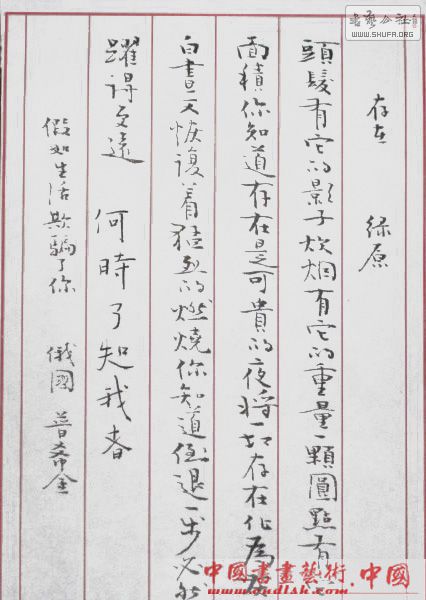 書藝公社
WWW.SHUFA.ORG
存在 綠原
頭髮有它的影子炊烟有它的重量一顆圓點有
面積你知道存在是可貴的夜將一切存在化為
白晝又恢復着猛烈的燃燒你知道倒退一步必然
躍得更遠 何時了知我春
假如生活欺騙了你 俄國 普希金
中國書畫藝術.中國